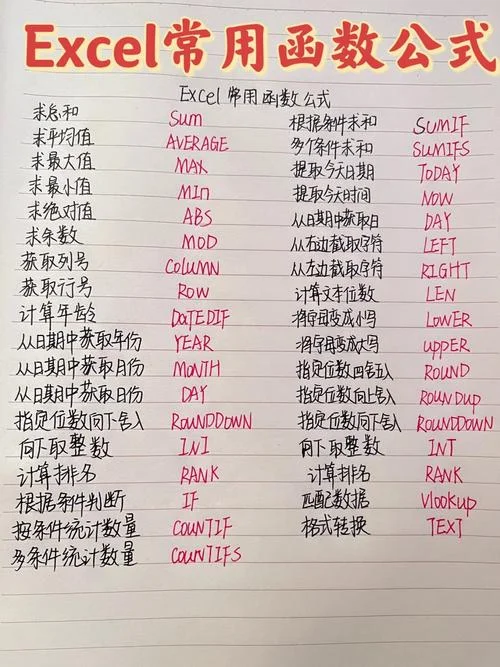 Excel常用函数公式
Excel常用函数公式
求总和 Sum
求平均值 AVERAGE
求最大值 MAX
求最小值 Min
求绝对值 ABS
求余数 MOD
获取列号 COLUMN
获取行号 ROW
计算年龄 DATEDIF
从日期中获取年份 YEAR
从日期中获取月份 MONTH
从日期中获取日份 DAY
指定位数向下舍入 ROUNDDOWN
向下取整数 INI
计算排名 RANK
根据条件判断 IF
按条件统计数量 COUNTIF
多条件统计数量 COUNTIFS
根据条件求和 SUMIF
多个条件求和 SUMIFS
提取今天日期 TODAY
提取今天时间 NOW
从日期中获取日 DAY
从右边截取字符 LEFT
从左边截取字符 RIGHT
计算文本位数 LEN
将字母变成小写 LOWER
将字母变成大写 upPER
指定位数四舍五入 ROUND
指定位数向上舍入 ROUNDup
指定位数向下舍入 ROUNDDOWN
向下取整数 INT
计算排名 RANK
匹配数据 Vlookup
格式转换 TEXT